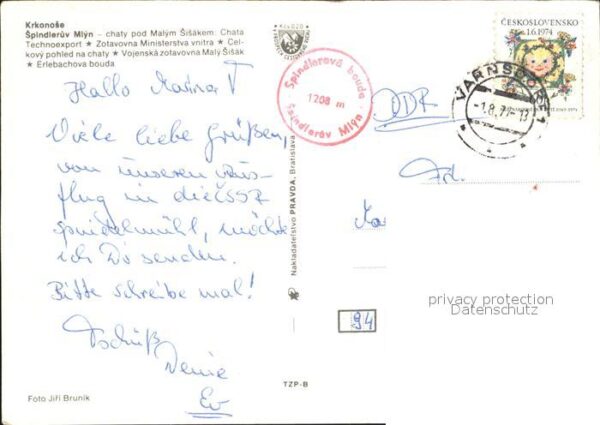 Krkonoše
Špindlerův Mlýn – chaty pod Malým Šišákem: Chata
Technoexport ★ Zotavovna Ministerstva vnitra ★ Cel-
kový pohled na chaty ★ Vojenská zotavovna Malý Šišák
★ Erlebachova bouda
Hallo
Viele liebe Grüße,
von unseren Aus-
flug in die ČSSR
Spindelmühl, möcht
ich Dir senden.
Bitte schreibe mal!
Tschüß
Foto Jiří Bruník
Nakladatelství PRAVDA, Bratislava
TZP-B
Špindlerova bouda
1208 m
Špindlerův Mlýn
DDR
Frl.
94
ČESKOSLOVENSKO
1.6.1974
VARNSDORF 1
privacy protection
Datenschutz